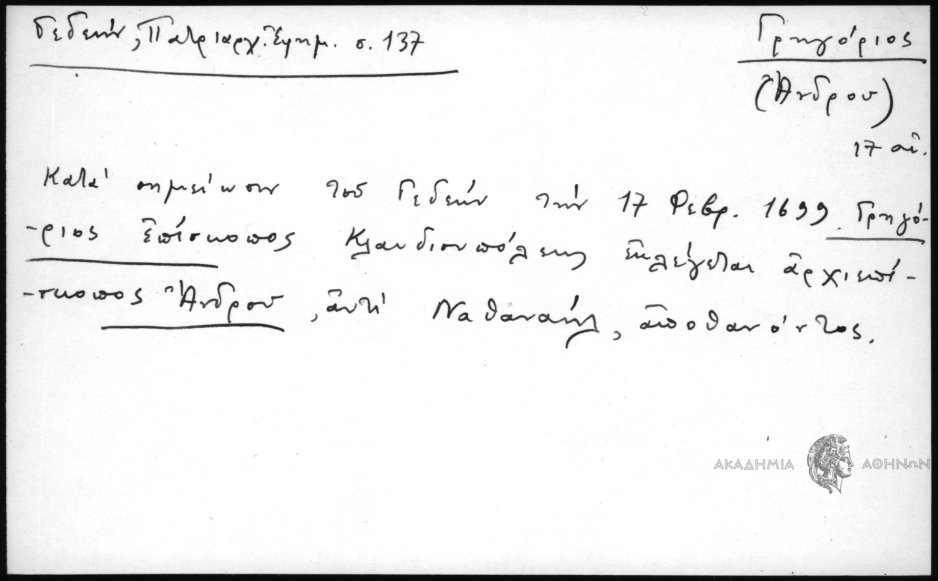 Γεδεών, Πατριαρχ. Ἐφημ. σ. 137
Γρηγόριος
(Ἄνδρου)
17 αἰ.
Κατά σημείωσιν τοῦ Γεδεών τήν 17 Φεβρ. 1699 Γρηγό-
-ριος ἐπίσκοπος Κλαυδιουπόλεως ἐκλέγεται ἀρχιεπί-
-σκοπος Ἄνδρου, ἀντί Ναθαναήλ, ἀποθανόντος.
ΑΚΑΔΗΜΙΑ ΑΘΗΝΩΝ